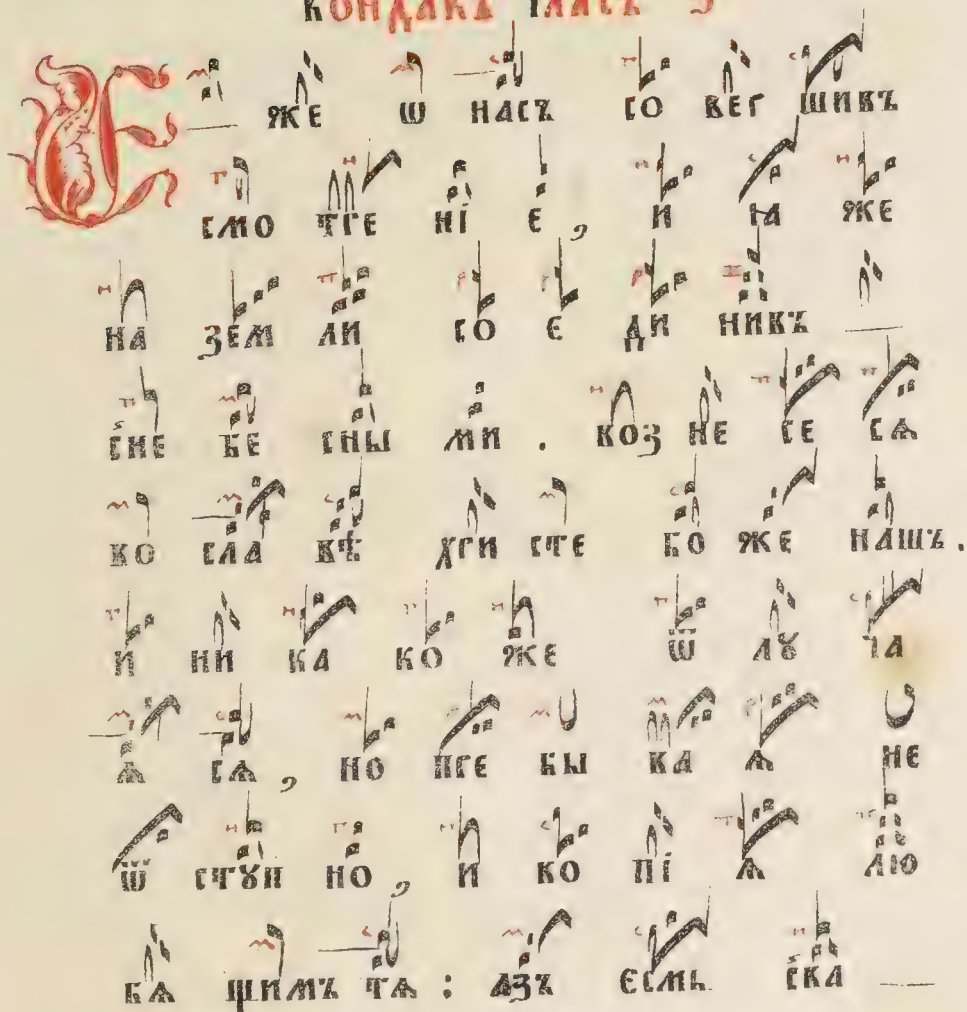 кондакъ гласъ ѕ҃
Е же ѡ насъ со вер шивъ
смо тре нї е, и ꙗ же
на зем ли со е ди нивъ
с̾не бе сны ми. воз не се сѧ
во сла вѣ хри сте бо же нашъ.
и ни ка ко же ѿ лꙋ ча
ѧ сѧ, но пре бы ва ѧ не
ѿ стꙋп но, и во пї ѧ лю
бѧ щимъ тѧ: азъ есмь с̾ва